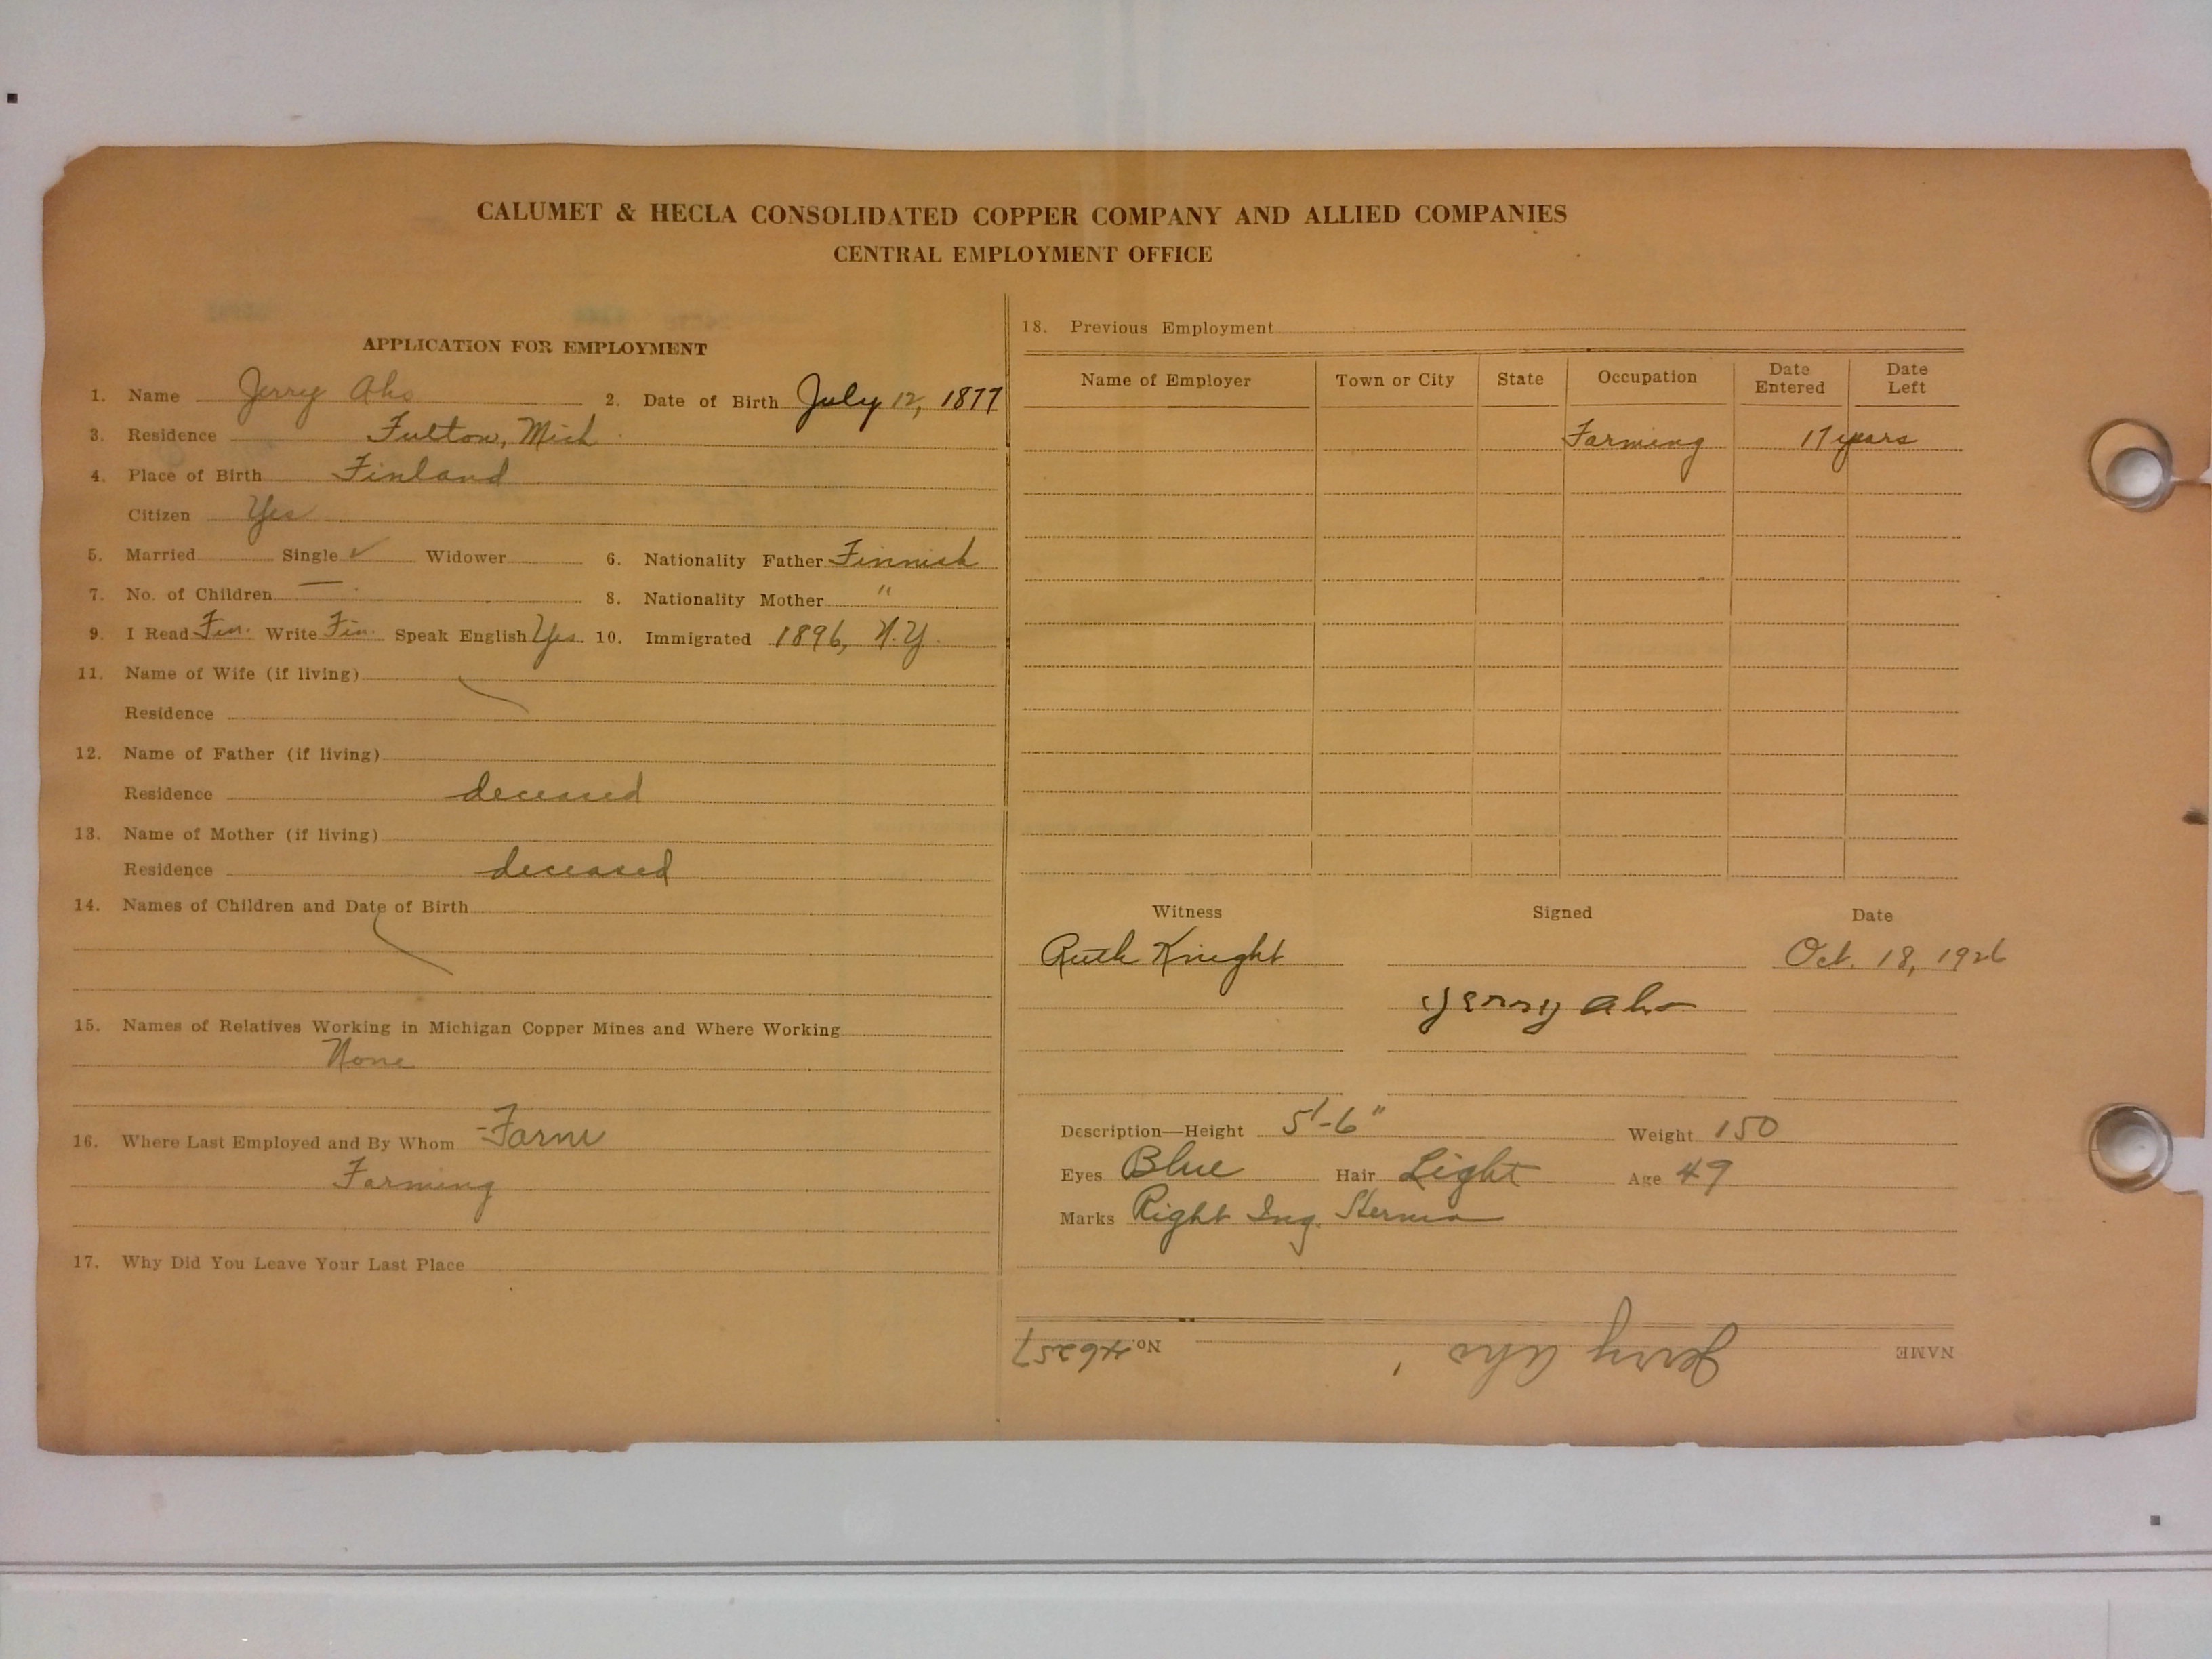 CALUMET & HECLA CONSOLIDATED COPPER COMPANY AND ALLIED COMPANIES
CENTRAL EMPLOYMENT OFFICE
APPLICATION FOR EMPLOYMENT
1. Name Jerry Aho 2. Date of Birth July 12, 1877
3. Residence Fulton, Mich
4. Place of Birth Finland
Citizen Yes
5. Married Single ✓ Widower 6. Nationality Father Finnish
7. No. of Children — 8. Nationality Mother "
9. I Read Fin. Write Fin. Speak English Yes 10. Immigrated 1896, N.Y.
11. Name of Wife (if living)
Residence
12. Name of Father (if living)
Residence deceased
13. Name of Mother (if living)
Residence deceased
14. Names of Children and Date of Birth
15. Names of Relatives Working in Michigan Copper Mines and Where Working
None
16. Where Last Employed and By Whom Farm
Farming
17. Why Did You Leave Your Last Place
18. Previous Employment
Name of Employer Town or City State Occupation Date Entered Date Left
Farming 17 years
Witness Signed Date
Ruth Knight Oct. 18, 1926
Jerry Aho
Description—Height 5'-6" Weight 150
Eyes Blue Hair Light Age 49
Marks Right Ing. Hernia
NAME Jerry Aho No. 46257